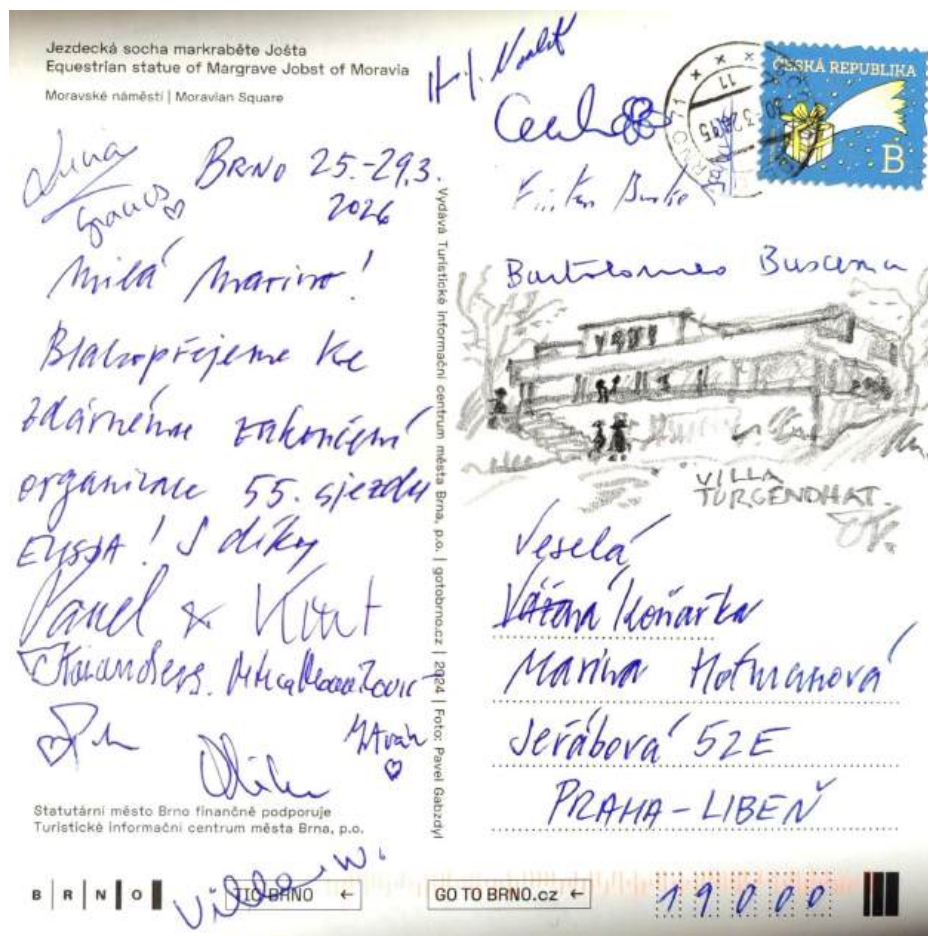 Jezdecká socha markraběte Jošta
Equestrian statue of Margrave Jobst of Moravia
Moravské náměstí | Moravian Square
BRNO 25.-29.3.
2026
Milá Marino!
Blahopřejeme ke
zdárnému zakončení
organizace 55. sjezdu
S díky
Pavel & Kurt
Statutární město Brno finančně podporuje
Turistické informační centrum města Brna, p.o.
BRNO
TIC BRNO ←
Vydává Turistické informační centrum města Brna, p.o. | gotobrno.cz | 2024 | Foto: Pavel Gabzdyl
ČESKÁ REPUBLIKA
B
BRNO 71
Bartolomeo Buscema
VILLA
TURGENDHAT.
Veselá
Vážená Koňařka
Marina Hofmanová
Jeřábová 52E
PRAHA-LIBEŇ
GO TO BRNO.cz ←
19000